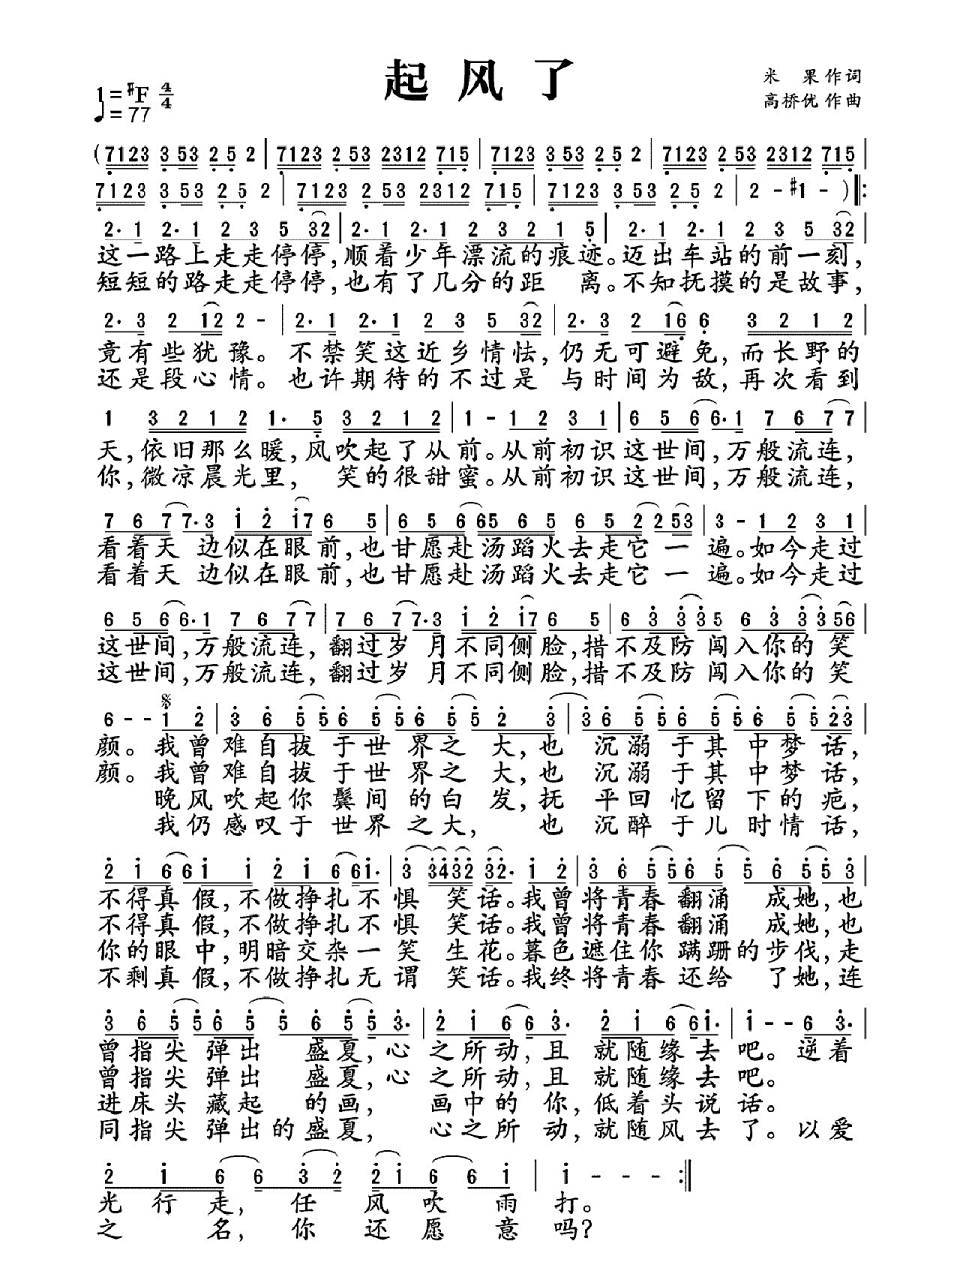 起风了
米 果作词
高桥优 作曲
1=#F 4/4
♩=77
(7123 3 53 2·5 2 | 7123 2·53 2312 715 | 7123 3·53 2·5 2 | 7123 2·53 2312 715 |
7123 3 53 2 5 2 | 7123 2·53 2312 715 | 7123 3 53 2 5 2 | 2 - #1 - ) ‖:
2· 1 2· 1 2 3 5 32 | 2· 1 2· 1 2 3 2 1 5 | 2· 1 2· 1 2 3 5 32 |
这一路上走走停停,顺着少年漂流的痕迹。迈出车站的前一刻,
短短的路走走停停,也有了几分的距 离。不知抚摸的是故事,
2· 3 2 12 2 - | 2· 1 2· 1 2 3 5 32 | 2· 3 2 16 6 3 2 1 2 |
竟有些犹豫。不禁笑这近乡情怯,仍无可避免,而长野的
还是段心情。也许期待的不过是 与时间为敌,再次看到
1 3 2 1 2 1· 5 3 2 1 2 | 1 - 1 2 3 1 | 6 5 6 6· 1 7 6 7 7 |
天,依旧那么暖,风吹起了从前。从前初识这世间,万般流连,
你,微凉晨光里, 笑的很甜蜜。从前初识这世间,万般流连,
7 6 7 7· 3 1 2 17 6 5 | 6 5 6 65 6 5 6 5 2 2 53 | 3 - 1 2 3 1 |
看着天 边似在眼前,也甘愿赴汤蹈火去走它 一 遍。如今走过
看着天 边似在眼前,也甘愿赴汤蹈火去走它 一 遍。如今走过
6 5 6 6· 1 7 6 7 7 | 7 6 7 7· 3 1 2 17 6 5 | 6 3 3 35 6 3 3 356 |
这世间,万般流连,翻过岁 月不同侧脸,措不及防 闯入你的 笑
这世间,万般流连,翻过岁 月不同侧脸,措不及防 闯入你的 笑
6 - - 1 2 | 3 6 5 5 6 5 6 5 5 2 3 | 3 6 5 5 6 5 6 5 5 23 |
颜。我曾难自拔于世界之 大,也 沉溺于其中梦话,
颜。我曾难自拔于世界之 大,也 沉溺于其中梦话,
晚风吹起你鬓间的白 发,抚 平回忆留下的疤,
我仍感叹于世界之大, 也 沉醉于儿时情话,
2 1 6 6 1 1 2 1 6 61· | 3 3432 3 32· 1 2 | 3 6 5 5 6 5 6 5 5 3 |
不得真 假,不做挣扎不惧 笑话。我曾将青春翻涌 成她,也
不得真 假,不做挣扎不惧 笑话。我曾将青春翻涌 成她,也
你的眼 中,明暗交杂一笑 生花。暮色遮住你蹒跚的步伐,走
不剩真 假,不做挣扎无谓 笑话。我终将青春还给 了她,连
3 6 5 5 6 5 6 5 5 3· | 2 1 6 6 3· 2 1 6 61· | 1 - - 6 3· |
曾指尖弹出 盛夏,心之所动,且 就随缘去吧。逆着
曾指尖弹出 盛夏,心之所动,且 就随缘去吧。
进床头藏起 的画, 画中的你,低着头说话。
同指尖弹出的盛夏, 心之所 动,就随风去了。以爱
2 1 6 6 3 2 2 1 6 6 1 | 1 - - - :‖
光行走,任风吹雨打。
之 名,你还愿意吗?